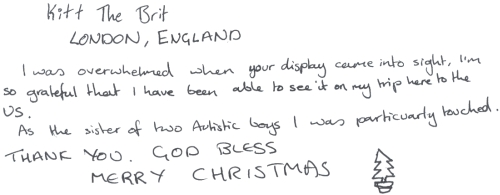 Kitt The Brit
LONDON, ENGLAND
I was overwhelmed when your display came into sight, I'm
so grateful that I have been able to see it on my trip here to the
US.
As the sister of two Autistic boys I was particuarly touched.
THANK YOU. GOD BLESS
MERRY CHRISTMAS